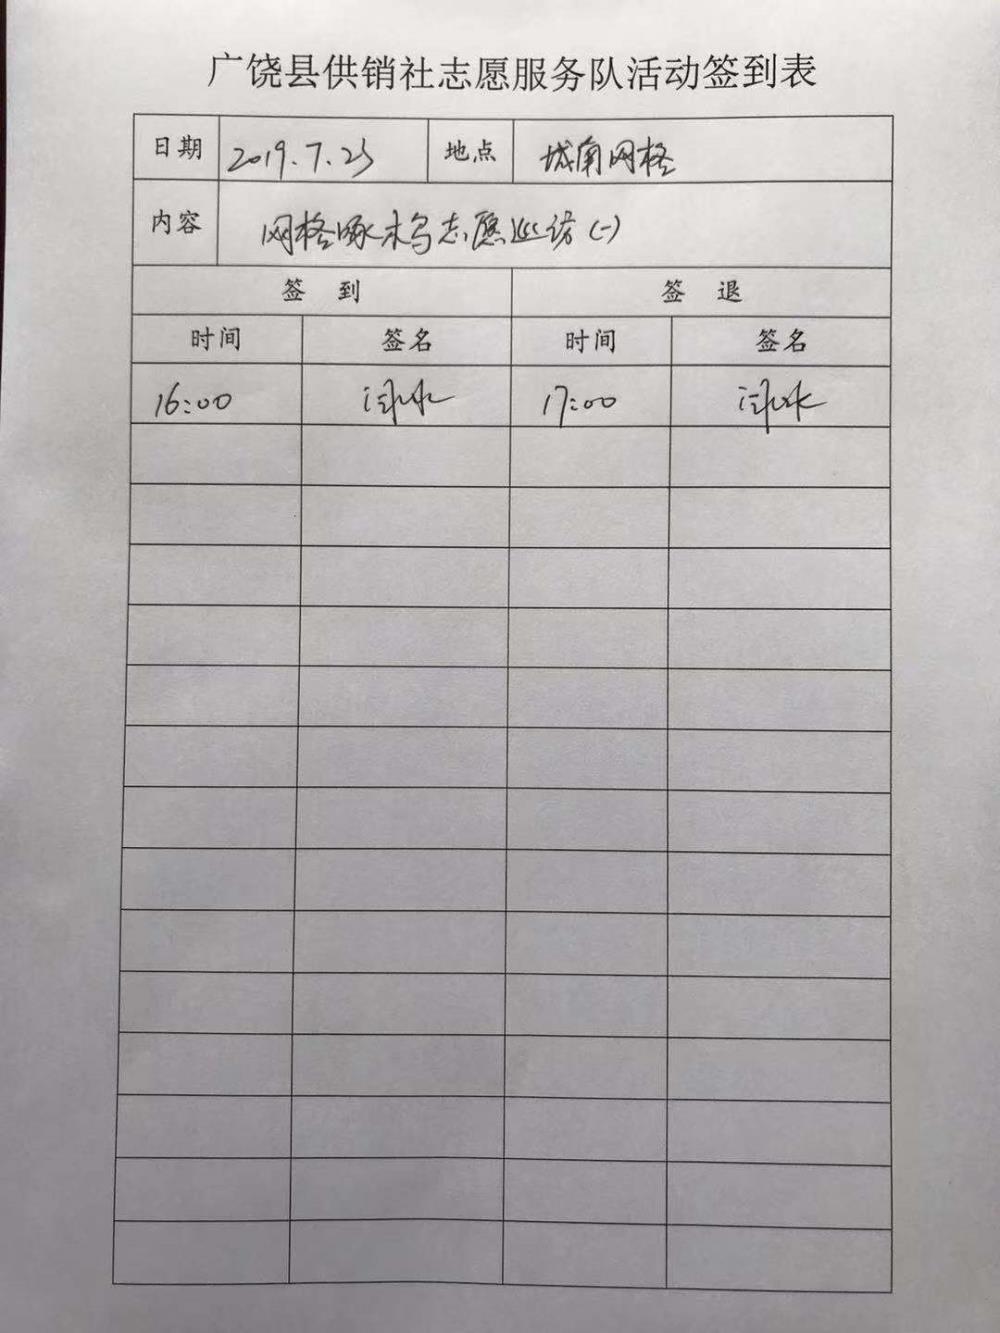 广饶县供销社志愿服务队活动签到表
日期 2019.7.23 地点 城南网格
内容 网格啄木鸟志愿巡访(一)
签到 签退
时间 签名 时间 签名
16:00 17:00